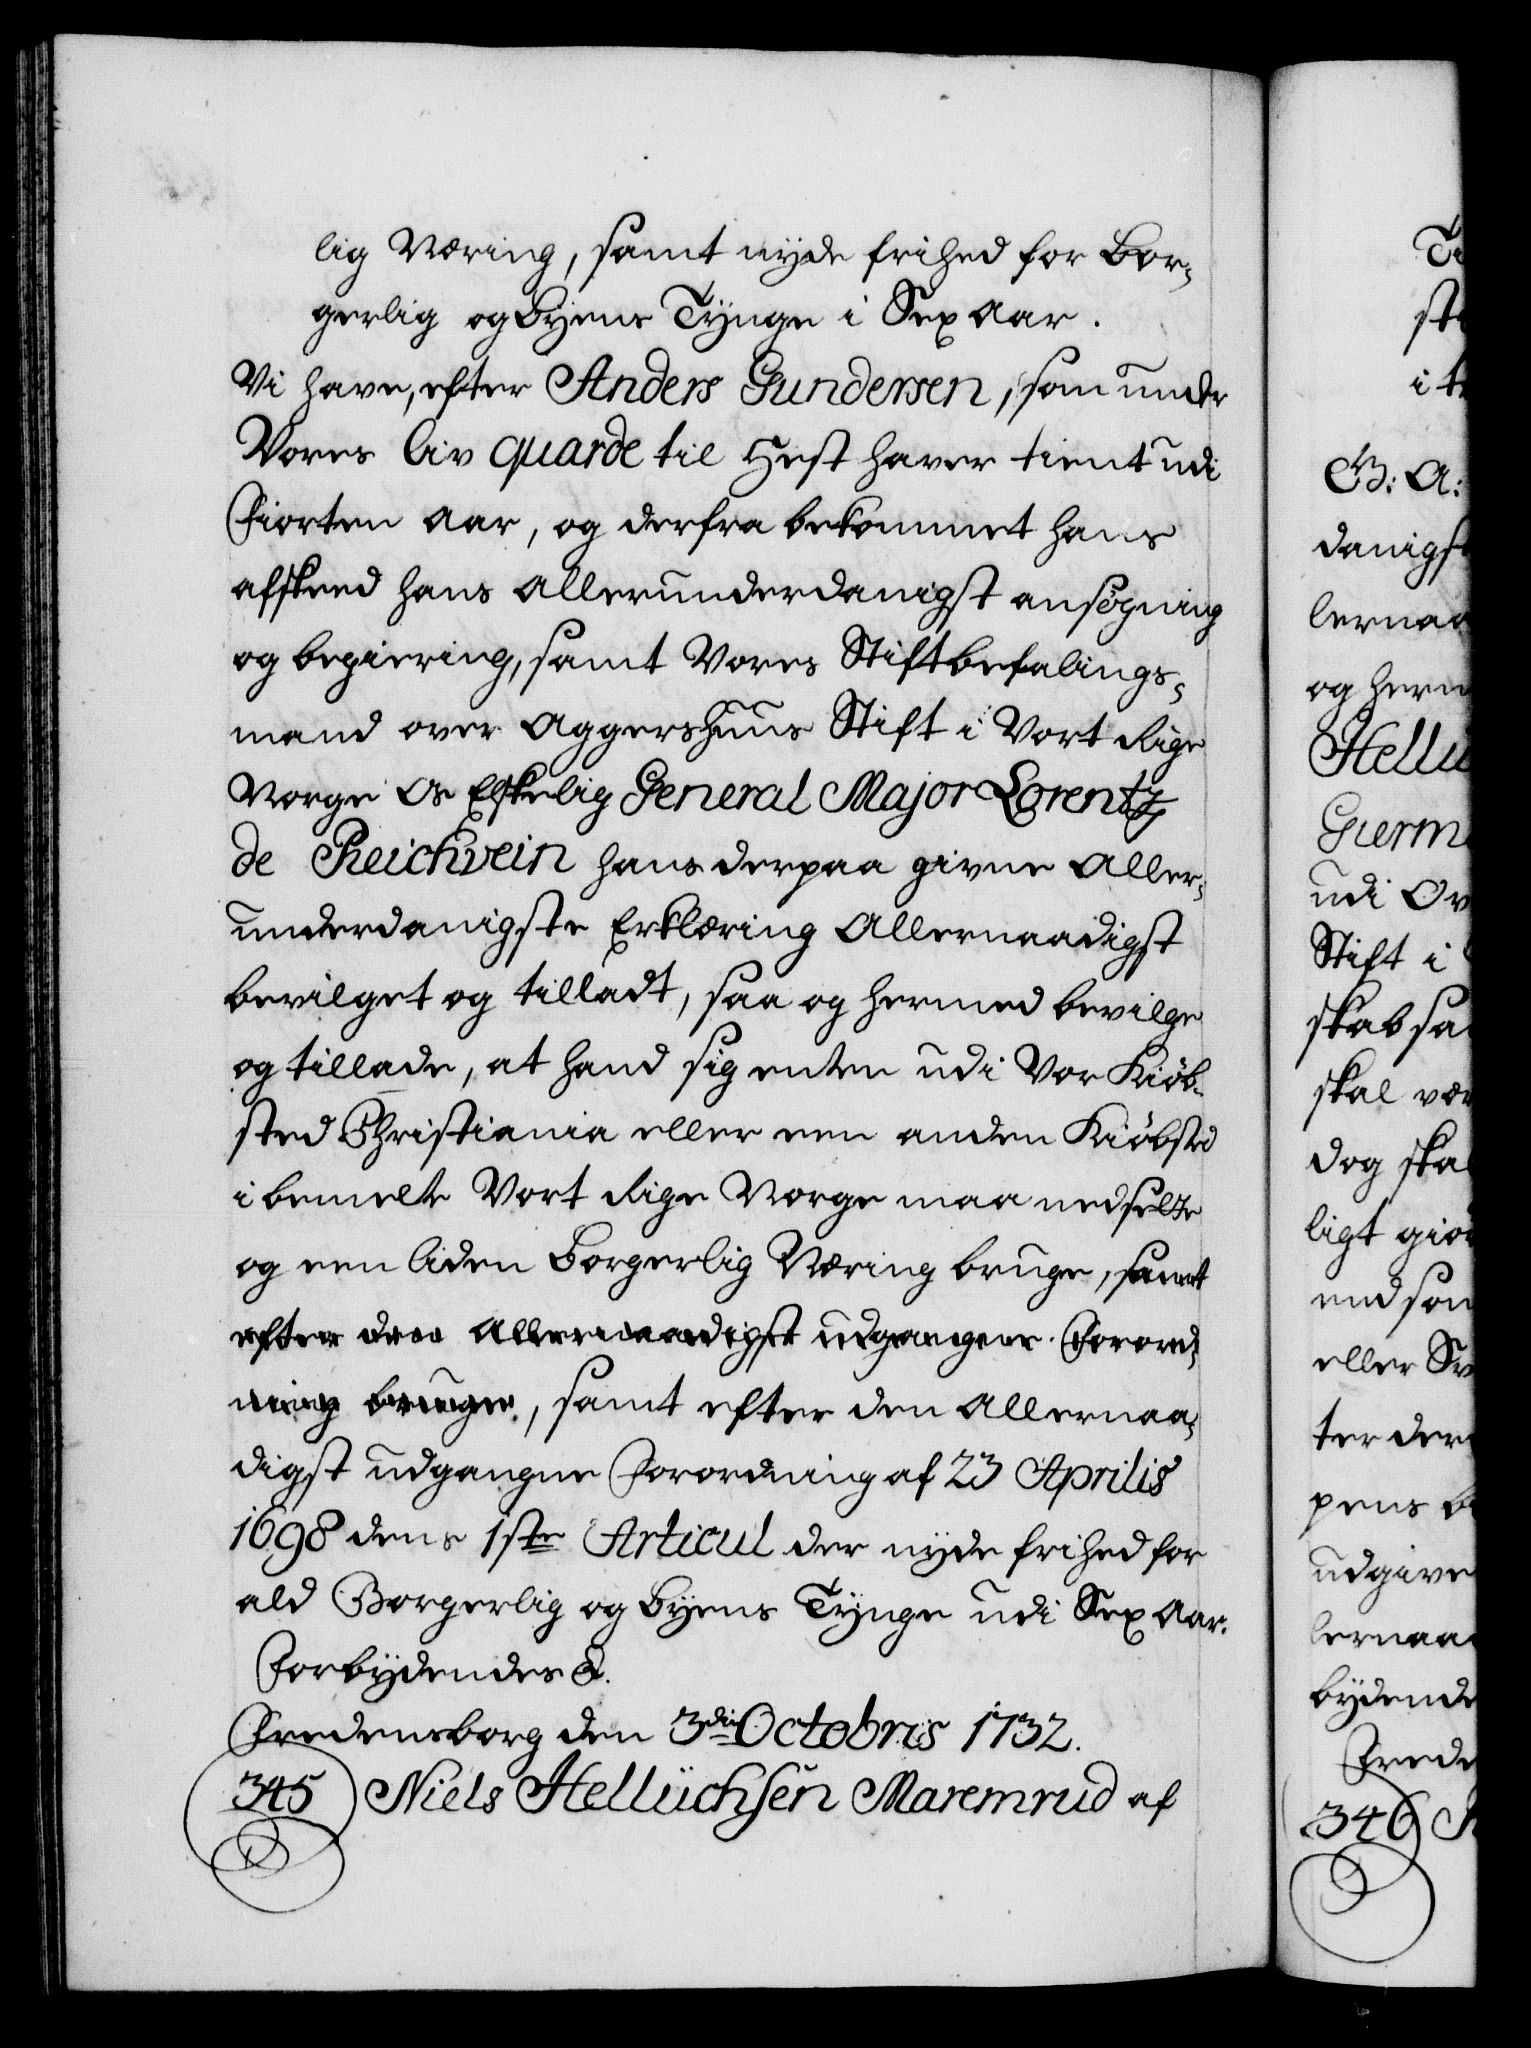 lig Næring, samt nyde frihed for Bor-
gerlig og Byens Tynge i Sex Aar.
Vi have, efter Anders Gundersen, som under
Vores liv quarde til Hest haver tient udi
Fiorten Aar, og derfra bekommet hans
afskeed hans Allerunderdanigst ansøgning
og begiering, samt Vores Stiftbefalings-
mand over Aggershuus Stift i Vort Rige
Norge Os Elskelig General Major Lorentz
de Reichvein hans derpaa givne Aller-
underdanigste Erklæring Allernaadigst
bevilget og tilladt, saa og hermed bevilge
og tillade, at hand sig enten udi Vor Kiøb-
sted Christiania eller een anden Kiøbsted
i bemelte Vort Rige Norge maa nedsette
og een liden Borgerlig Næring bruge, samt
efter den Allernaadigst udgangne Forord-
ning bruge, samt efter den Allernaa-
digst udgangne Forordning af 23 Aprilis
1698 dens 1ste Articul der nyde frihed for
ald Borgerlig og Byens Tynge udi Sex Aar.
Forbydendes &.
Fredensborg den 3die Octobris 1732.
345 Niels Hellüchsen Maremrud af
Ti
ste
i t
G: A:
danigst
lernaa
og herm
Hellü
Guerm
udi Ov
Stift i
skab sa
skal vær
dog skal
ligt giør
end som
eller Sv
ter der
pens b
udgive
lernaa
bydende
Frede
346